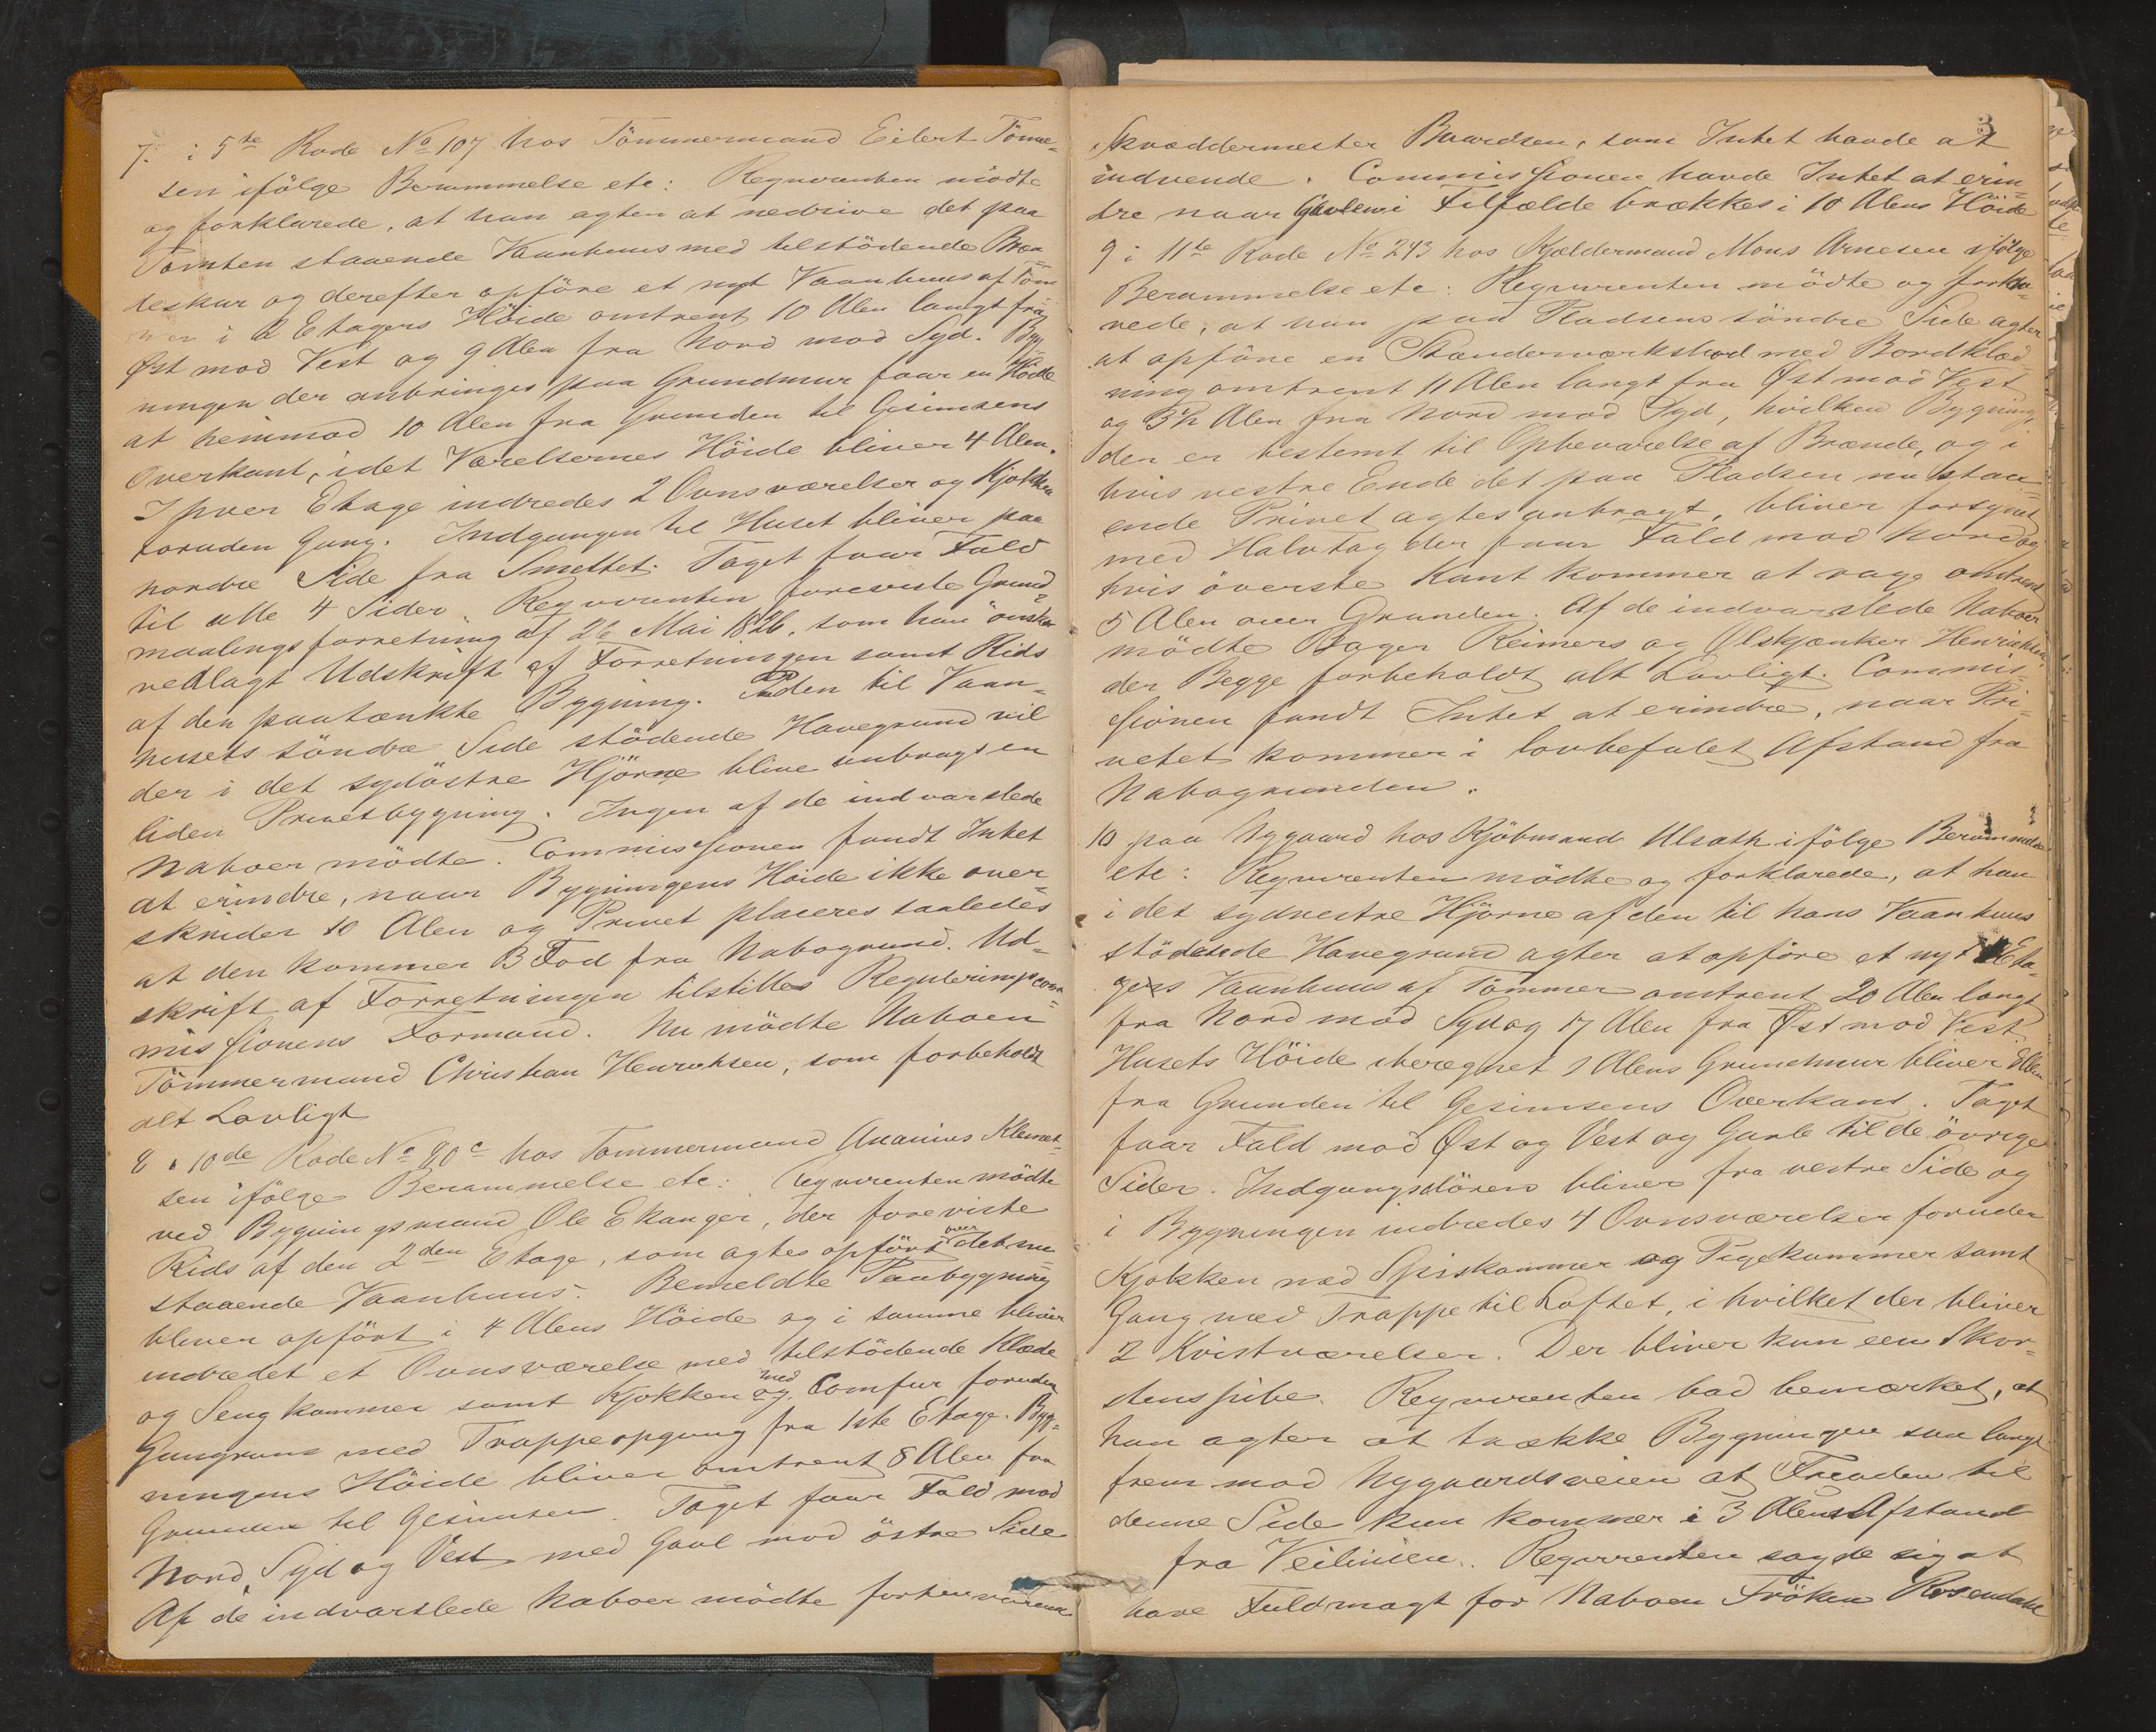 7. i 5te Rode No 107 hos Tömmermand Eilert Tönne-
sen ifölge Berammelse etc: Reqvirenten mödte
og forklarede, at han agter at nedrive det paa
Tomten staaende Vaanhuus med tilstödende Bræn-
deskur og derefter opföre et nyt Vaanhuus af Töm-
mer i 2 Etagers Höide omtrent 10 Alen langt fra
Øst mod Vest og 9 Alen fra Nord mod Syd. Byg-
ningen der anbringes paa Grundmur faar en Höide
at henimod 10 Alen fra Grunden til Gesimsens
Overkant, idet Værelsernes Höide bliver 4 Alen.
I hver Etage indredes 2 Ovnsværelser og Kjökken
foruden Gang. Indgangen til Huset bliver paa
nordre Side fra Smettet. Taget faar Fald
til alle 4 Sider. Reqvirenten foreviste Grund-
maalingsforretning af 26 Mai 1826, som han önsker
vedlagt Udskrift af Forretningen samt Rids
af den paatænkte Bygning. Paa den til Vaan-
husets söndre Side stödende Havegrund vil
der i det sydöstre Hjörne blive anbragt en
liden Privetbygning. Ingen af de indvarslede
Naboer mödte. Commissionen fandt Intet
at erindre, naar Bygningens Höide ikke over-
skrider 10 Alen og Privet placeres saaledes
at den kommer 3 Fod fra Nabogrund. Ud-
skrift af Forretningen tilstilles Reguleringscom-
missionens Formand. Nu mödte Naboen
Tömmermand Christian Henrichsen, som forbeholdt
alt Lovligt
8 i 10de Rode No 90c hos Tømmermand Ananias Klemet-
sen ifölge Berammelse etc: Reqvirenten mödte
ved Bygningsmand Ole Ekanger, der foreviste
Rids af den 2den Etage, som agtes opfört over det nu
staaende Vaanhuus. Bemeldte Paabygning
bliver opfört i 4 Alens Höide og i samme bliver
indredet et Ovnsværelse med tilstödende Klæde
og Sengkammer samt Kjökken og med Comfur foruden
Gangrum med Trappeopgang fra 1ste Etage. Byg-
ningens Höide bliver omtrent 8 Alen fra
Grunden til Gesimsen. Taget faar Fald mod
Nord, Syd og Vest med Gavl mod östre Side
Af de indvarslede Naboer mödte forhenværende
3
Skræddermester Baardsen, som Intet havde at
indvende. Commissionen havde Intet at erin-
dre naar Gavlen i Tilfælde brækkes i 10 Alens Höide
9 i 11te Rode No 243 hos Kjældermand Mons Arnesen ifölge
Berammelse etc: Reqvirenten mödte og forkla-
rede, at han paa Pladsens söndre Side agter
at opföre en Stænderværksbod med Bordklæd-
ning omtrent 11 Alen langt fra Øst mod Vest
og 3½ Alen fra Nord mod Syd, hvilken Bygning,
der er bestemt til Opbevarelse af Brænde, og i
hvis vestre Ende det paa Pladsen nu staa-
ende Privet agtes anbragt, bliver forsynet
med Halvtag der faar Fald mod Nord og
hvis överste Kant kommer at rage omtrent
5 Alen over Grunden. Af de indvarslede Naboer
mödte Bager Reimers og Ølskjænker Henriksen,
der Begge forbeholdt alt Lovligt. Commis-
sionen fandt Intet at erindre, naar Pri-
vetet kommer i lovbefalet Afstand fra
Nabogrunden.
10 paa Nygaard hos Kjöbmand Ulsath ifölge Berammelse
etc: Reqvirenten mödte og forklarede, at han
i det sydvestre Hjörne af den til hans Vaanhuus
stödende Havegrund agter at opföre et nyt 1 Eta-
gers Vaanhuus af Tömmer omtrent 20 Alen langt
fra Nord mod Syd og 17 Alen fra Øst mod Vest.
Husets Höide iberegnet 1 Alens Grundmur bliver Alen
fra Grunden til Gesimsens Overkant. Taget
faar Fald mod Øst og Vest og Gavle til de övrige
Sider. Indgangsdören bliver fra vestre Side og
i Bygningen indredes 4 Ovnsværelser foruden
Kjökken med Spiskammer og Pigekammer samt
Gang med Trappe til Loftet, i hvilket der bliver
2 Kvistværelser. Der bliver kun een Skor-
stenspibe. Reqvirenten bad bemærket, at
han agter at trække Bygningen saa langt
frem mod Nygaardsveien at Facaden til
denne Side kun kommer i 3 Alens Afstand
fra Veilinien. Reqvirenten sagde sig at
have Fuldmagt for Naboen Fröken Rosendahl